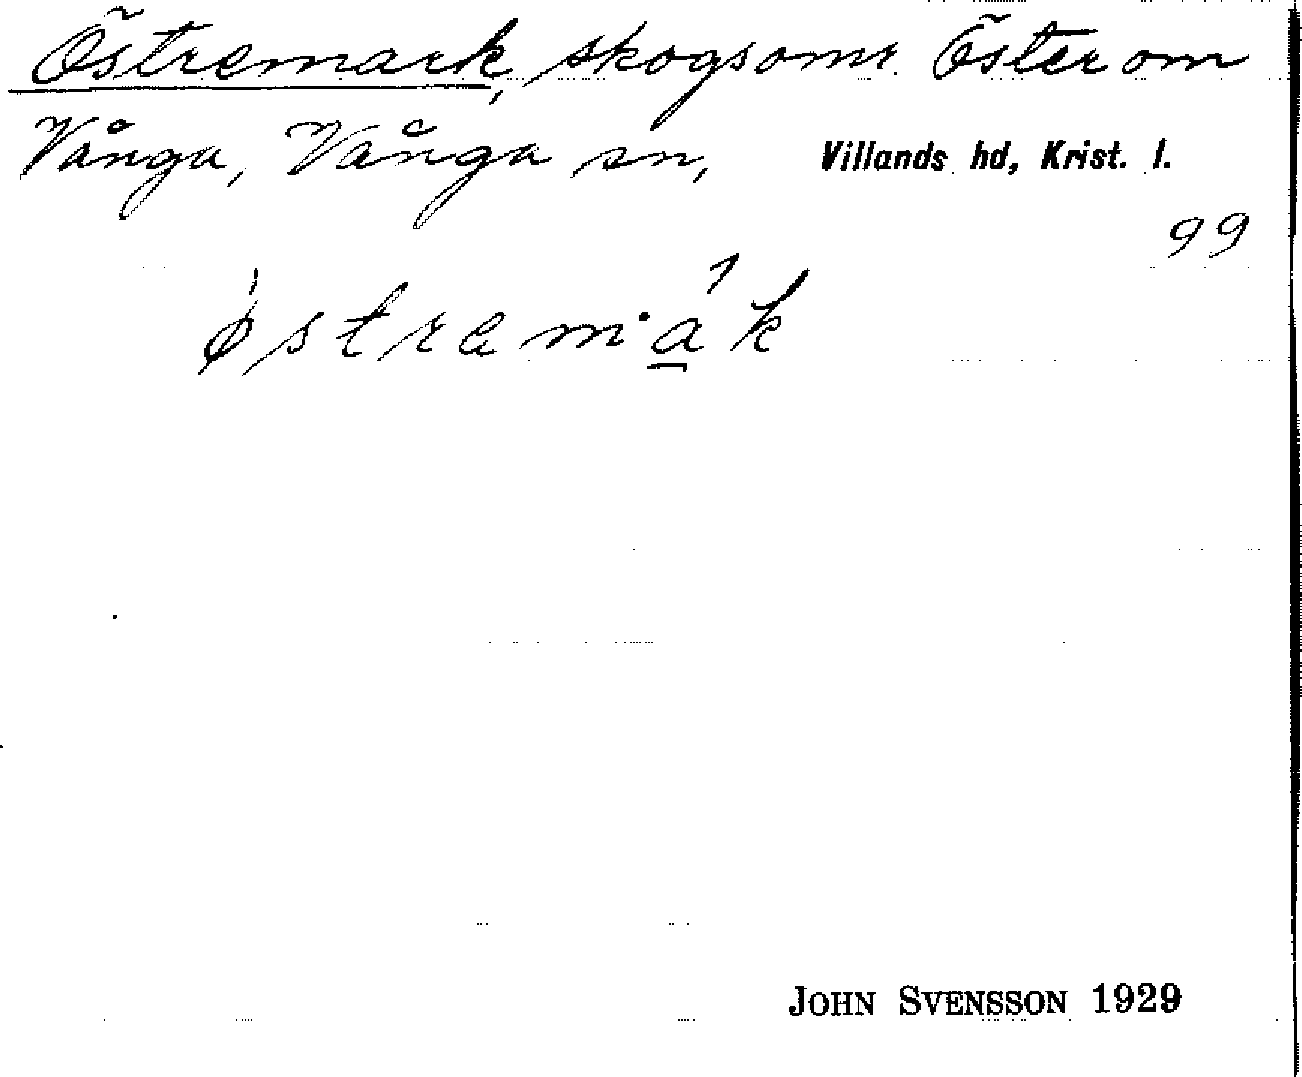 Östremark, skogsomr. Öster om
Vånga, Vånga sn, Villands hd, Krist. l.
99
østrem·ák
JOHN SVENSSON 1929